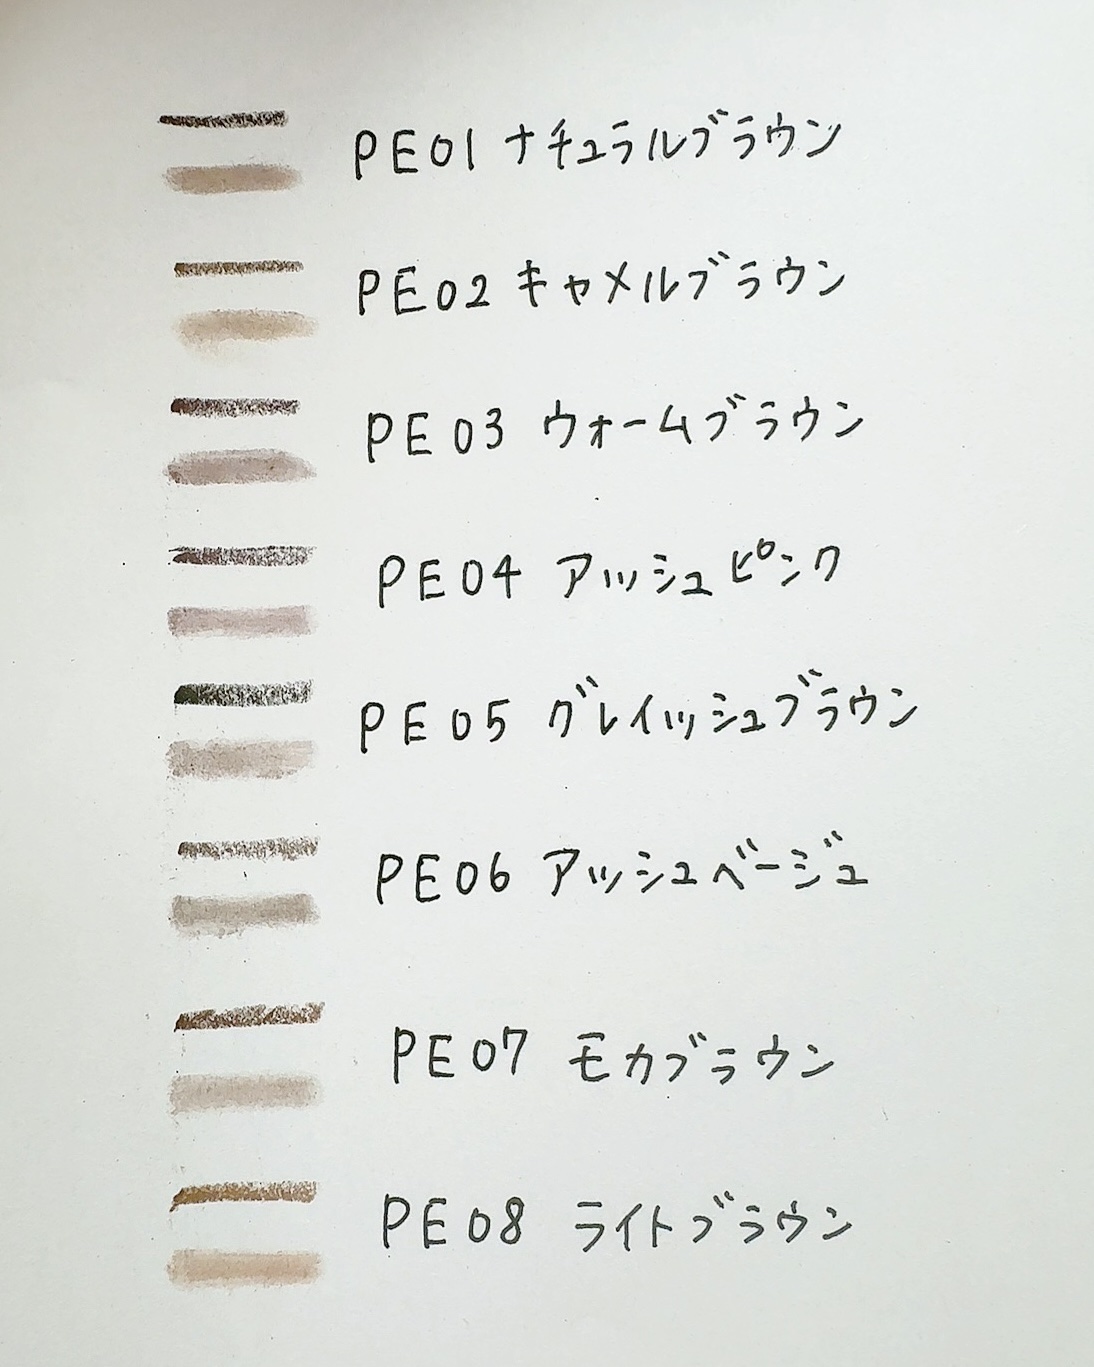 PE01 ナチュラルブラウン
PE02 キャメルブラウン
PE03 ウォームブラウン
PE04 アッシュピンク
PE05 グレイッシュブラウン
PE06 アッシュベージュ
PE07 モカブラウン
PE08 ライトブラウン